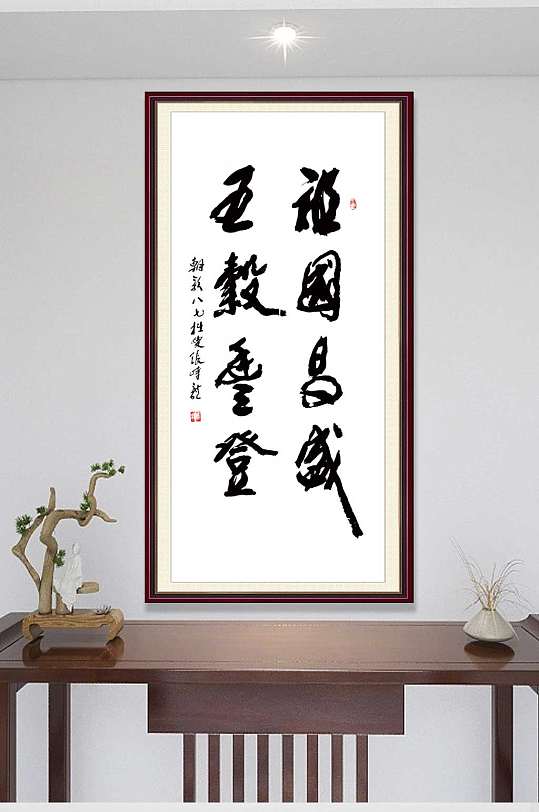 祖國昌盛
五穀豐登